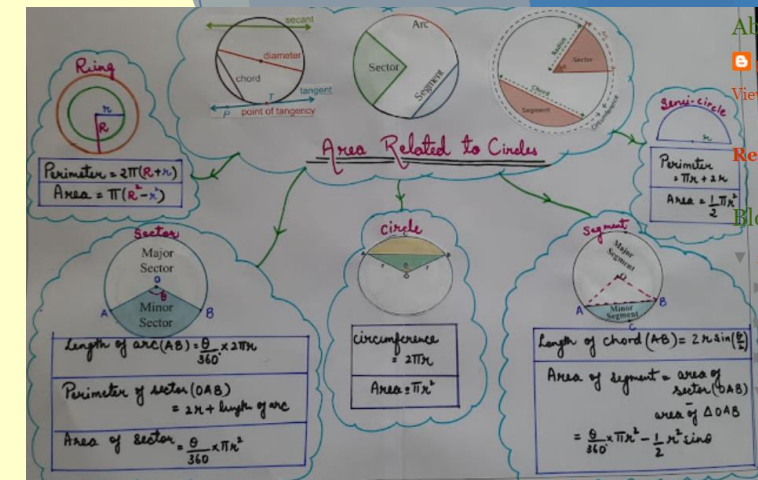 secant
diameter
chord
tangent
T
P
point of tangency
Arc
Sector
Segment
Radius
Sector
Chord
Segment
Circumference
Area Related to Circles
Ring
r
R
Perimeter = 2π(R+r)
Area = π(R²-r²)
Semi-circle
r
Perimeter
= πr + 2r
Area = 1/2 πr²
Sector
Major
Sector
O
θ
A
B
Minor
Sector
Length of arc (AB) = θ/360° × 2πr
Perimeter of sector (OAB)
= 2r + length of arc
Area of sector = θ/360 × πr²
Circle
circumference
= 2πr
Area = πr²
Segment
Major
Segment
O
A
B
Minor
Segment
C
Length of chord (AB) = 2r sin(θ/2)
Area of segment = area of
sector (OAB)
-
area of ΔOAB
= θ/360° × πr² - 1/2 r² sinθ
Ab
View
Re
Blo